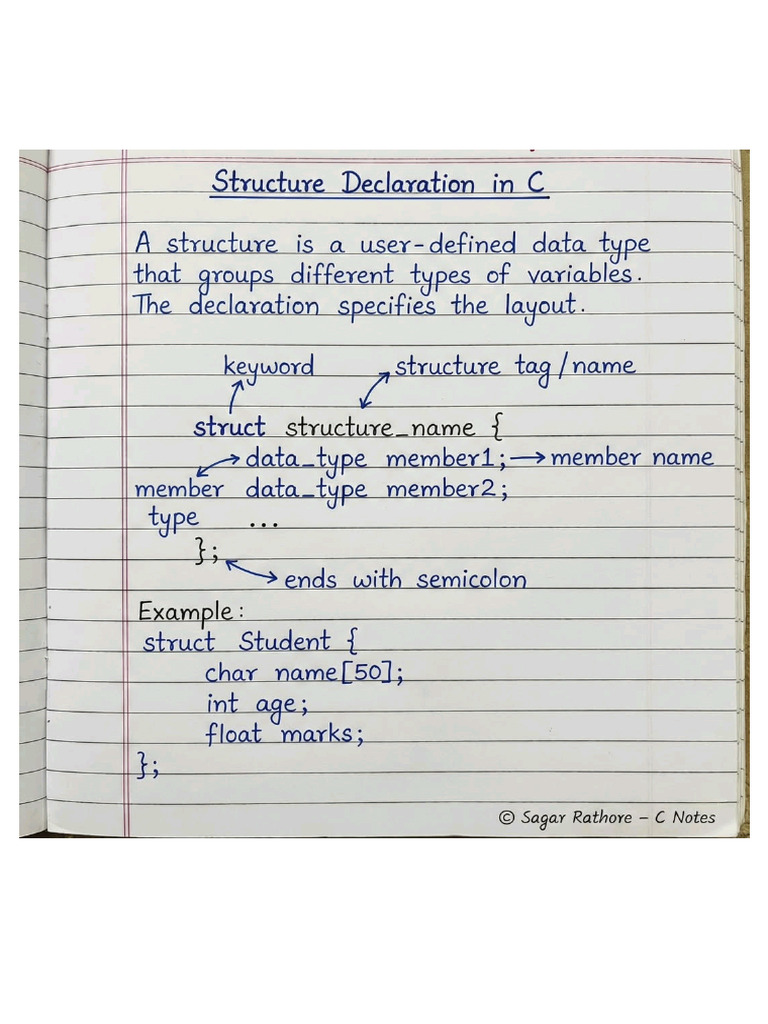 Structure Declaration in C
A structure is a user-defined data type
that groups different types of variables.
The declaration specifies the layout.
keyword structure tag/name
struct structure_name {
data_type member1; member name
member data_type member2;
type ...
};
ends with semicolon
Example:
struct Student {
char name[50];
int age;
float marks;
};
© Sagar Rathore – C Notes